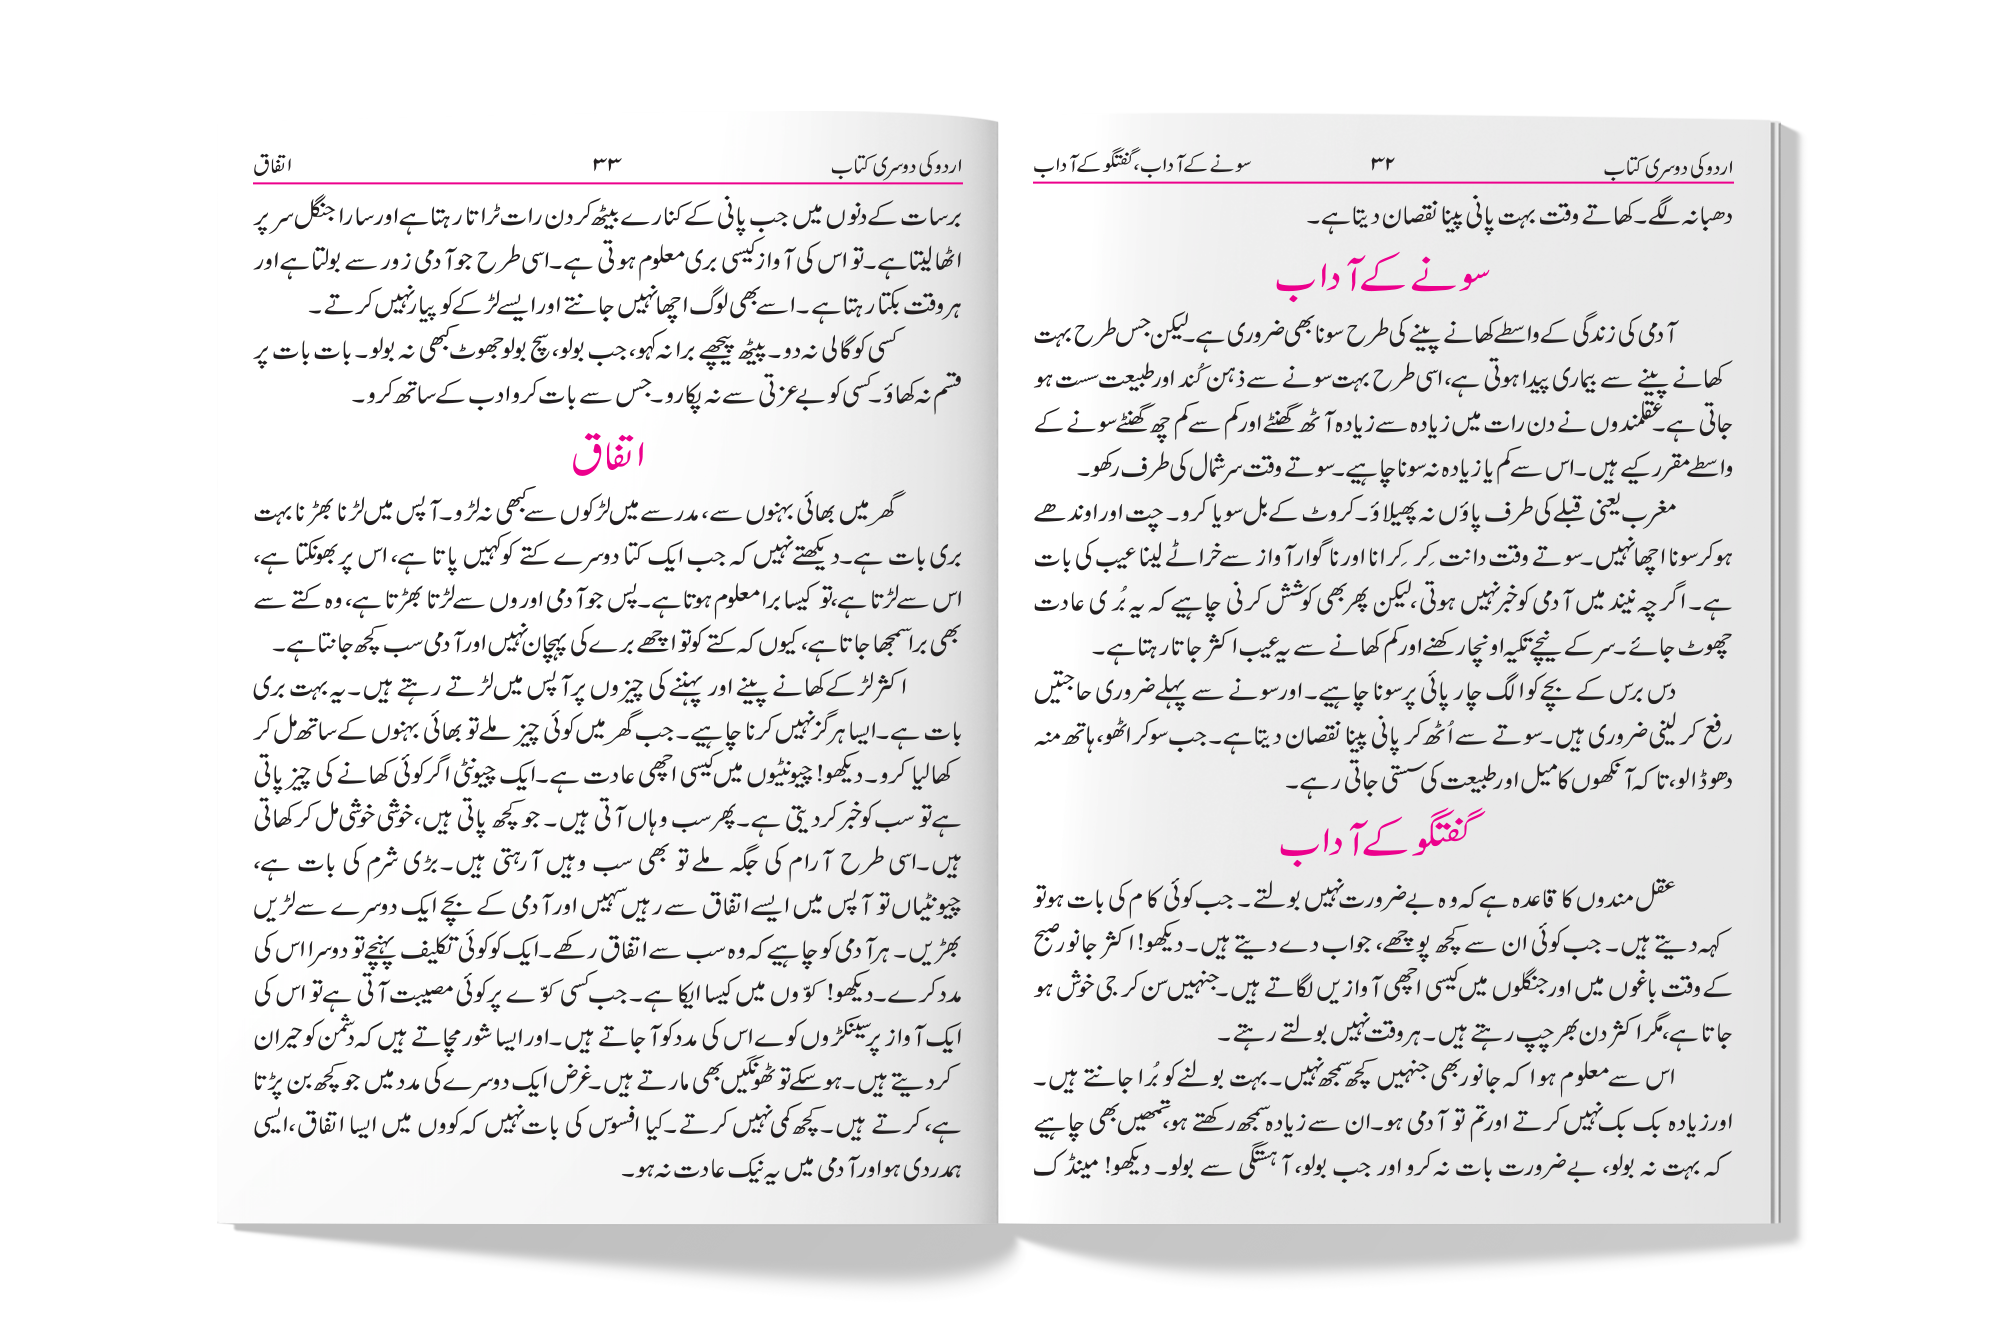 اردو کی دوسری کتاب ۳۲ سونے کے آداب، گفتگو کے آداب
دھبا نہ لگے۔ کھاتے وقت بہت پانی پینا نقصان دیتا ہے۔
سونے کے آداب
آدمی کی زندگی کے واسطے کھانے پینے کی طرح سونا بھی ضروری ہے۔ لیکن جس طرح بہت
کھانے پینے سے بیماری پیدا ہوتی ہے، اسی طرح بہت سونے سے ذہن کُند اور طبیعت سست ہو
جاتی ہے۔ عقلمندوں نے دن رات میں زیادہ سے زیادہ آٹھ گھنٹے اور کم سے کم چھ گھنٹے سونے کے
واسطے مقرر کیے ہیں۔ اس سے کم یا زیادہ نہ سونا چاہیے۔ سوتے وقت سر شمال کی طرف رکھو۔
مغرب یعنی قبلے کی طرف پاؤں نہ پھیلاؤ۔ کروٹ کے بل سویا کرو۔ چت اور اوندھے
ہو کر سونا اچھا نہیں۔ سوتے وقت دانت کِر کِرانا اور ناگوار آواز سے خراٹے لینا عیب کی بات
ہے۔ اگرچہ نیند میں آدمی کو خبر نہیں ہوتی، لیکن پھر بھی کوشش کرنی چاہیے کہ یہ بُری عادت
چھوٹ جائے۔ سر کے نیچے تکیہ اونچا رکھنے اور کم کھانے سے یہ عیب اکثر جاتا رہتا ہے۔
دس برس کے بچے کو الگ چارپائی پر سونا چاہیے۔ اور سونے سے پہلے ضروری حاجتیں
رفع کر لینی ضروری ہیں۔ سوتے سے اُٹھ کر پانی پینا نقصان دیتا ہے۔ جب سو کر اٹھو، ہاتھ منہ
دھو ڈالو، تاکہ آنکھوں کا میل اور طبیعت کی سستی جاتی رہے۔
گفتگو کے آداب
عقل مندوں کا قاعدہ ہے کہ وہ بے ضرورت نہیں بولتے۔ جب کوئی کام کی بات ہو تو
کہہ دیتے ہیں۔ جب کوئی ان سے کچھ پوچھے، جواب دے دیتے ہیں۔ دیکھو! اکثر جانور صبح
کے وقت باغوں میں اور جنگلوں میں کیسی اچھی آوازیں لگاتے ہیں۔ جنہیں سن کر جی خوش ہو
جاتا ہے، مگر اکثر دن بھر چپ رہتے ہیں۔ ہر وقت نہیں بولتے رہتے۔
اس سے معلوم ہوا کہ جانور بھی جنہیں کچھ سمجھ نہیں۔ بہت بولنے کو بُرا جانتے ہیں۔
اور زیادہ بک بک نہیں کرتے اور تم تو آدمی ہو۔ ان سے زیادہ سمجھ رکھتے ہو، تمھیں بھی چاہیے
کہ بہت نہ بولو، بے ضرورت بات نہ کرو اور جب بولو، آہستگی سے بولو۔ دیکھو! مینڈک
اردو کی دوسری کتاب ۳۳ اتفاق
برسات کے دنوں میں جب پانی کے کنارے بیٹھ کر دن رات ٹراتا رہتا ہے اور سارا جنگل سر پر
اٹھا لیتا ہے۔ تو اس کی آواز کیسی بری معلوم ہوتی ہے۔ اسی طرح جو آدمی زور سے بولتا ہے اور
ہر وقت بکتا رہتا ہے۔ اسے بھی لوگ اچھا نہیں جانتے اور ایسے لڑکے کو پیار نہیں کرتے۔
کسی کو گالی نہ دو۔ پیٹھ پیچھے برا نہ کہو، جب بولو، سچ بولو جھوٹ کبھی نہ بولو۔ بات بات پر
قسم نہ کھاؤ۔ کسی کو بے عزتی سے نہ پکارو۔ جس سے بات کرو ادب کے ساتھ کرو۔
اتفاق
گھر میں بھائی بہنوں سے، مدرسے میں لڑکوں سے کبھی نہ لڑو۔ آپس میں لڑنا بھڑنا بہت
بری بات ہے۔ دیکھتے نہیں کہ جب ایک کتا دوسرے کتے کو کہیں پاتا ہے، اس پر بھونکتا ہے،
اس سے لڑتا ہے، تو کیسا برا معلوم ہوتا ہے۔ پس جو آدمی اوروں سے لڑتا بھڑتا ہے، وہ کتے سے
بھی برا سمجھا جاتا ہے، کیوں کہ کتے کو تو اچھے برے کی پہچان نہیں اور آدمی سب کچھ جانتا ہے۔
اکثر لڑکے کھانے پینے اور پہننے کی چیزوں پر آپس میں لڑتے رہتے ہیں۔ یہ بہت بری
بات ہے۔ ایسا ہرگز نہیں کرنا چاہیے۔ جب گھر میں کوئی چیز ملے تو بھائی بہنوں کے ساتھ مل کر
کھا لیا کرو۔ دیکھو! چیونٹیوں میں کیسی اچھی عادت ہے۔ ایک چیونٹی اگر کوئی کھانے کی چیز پاتی
ہے تو سب کو خبر کر دیتی ہے۔ پھر سب وہاں آتی ہیں۔ جو کچھ پاتی ہیں، خوشی خوشی مل کر کھاتی
ہیں۔ اسی طرح آرام کی جگہ ملے تو بھی سب وہیں آ رہتی ہیں۔ بڑی شرم کی بات ہے،
چیونٹیاں تو آپس میں ایسے اتفاق سے رہیں سہیں اور آدمی کے بچے ایک دوسرے سے لڑیں
بھڑیں۔ ہر آدمی کو چاہیے کہ وہ سب سے اتفاق رکھے۔ ایک کو کوئی تکلیف پہنچے تو دوسرا اس کی
مدد کرے۔ دیکھو! کوّوں میں کیسا ایکا ہے۔ جب کسی کوّے پر کوئی مصیبت آتی ہے تو اس کی
ایک آواز پر سینکڑوں کوے اس کی مدد کو آ جاتے ہیں۔ اور ایسا شور مچاتے ہیں کہ دشمن کو حیران
کر دیتے ہیں۔ ہو سکے تو ٹھونگیں بھی مارتے ہیں۔ غرض ایک دوسرے کی مدد میں جو کچھ بن پڑتا
ہے، کرتے ہیں۔ کچھ کمی نہیں کرتے۔ کیا افسوس کی بات نہیں کہ کووں میں ایسا اتفاق، ایسی
ہمدردی ہو اور آدمی میں یہ نیک عادت نہ ہو۔